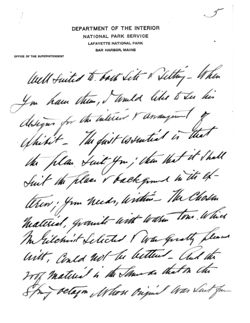 5
DEPARTMENT OF THE INTERIOR
NATIONAL PARK SERVICE
LAFAYETTE NATIONAL PARK
BAR HARBOR, MAINE
OFFICE OF THE SUPERINTENDENT
Well suited to both site & setting. When
You have them, I would like to see his
designs for the interior & arrangement of
exhibit. The first essential is that
the plan suit you; then that it shall
suit the place & background in its ex-
terior; your needs, within. The chosen
material, granite with warm tone, which
Mr Gilchrist selected & was greatly pleased
with, could not be bettered. And the
roof material is the same as that on the
Spring octagon whose original was sent you